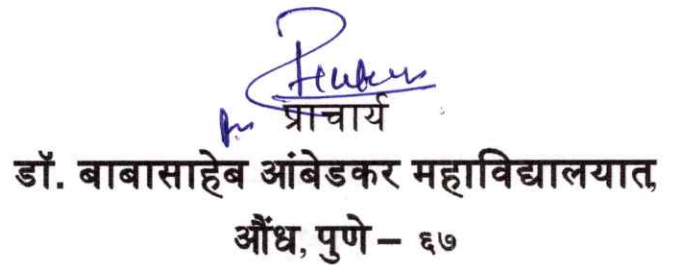 प्राचार्य
डॉ. बाबासाहेब आंबेडकर महाविद्यालयात,
औंध, पुणे – ६७